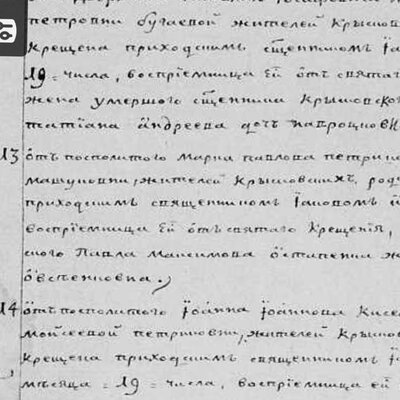 петровни бугаевой жителей Крылов
крещена приходскимъ сщ҃енникомъ Іа
19 = числа, воспріемница ей ѿтъ святаг
жена умершого сщ҃енника Крыловског
татіана андреева дочь
13 ѿтъ посполитого Марка павлова петрич
жителей Крыловскихъ, род
приходскимъ священникомъ Іаковомъ
воспріемница ей ѿтъ святаго Крещения,
ского Павла Максимова Остапенка ж
Овсѣенковна.
14 ѿтъ посполитого Іоанна Іоаннова Кисе
мойсеевой петриковни, жителей Крылов
крещена приходскимъ священникомъ Іа
мѣсяца = 19 = числа, воспріемница ей